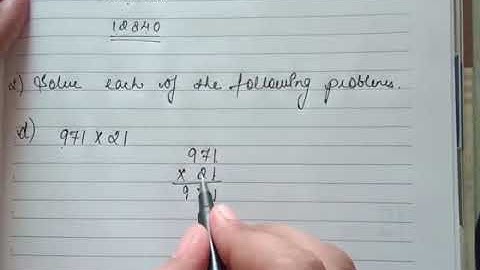 12840
2) Solve each of the following problems.
d) 971 X 21
971
X 21
9 1